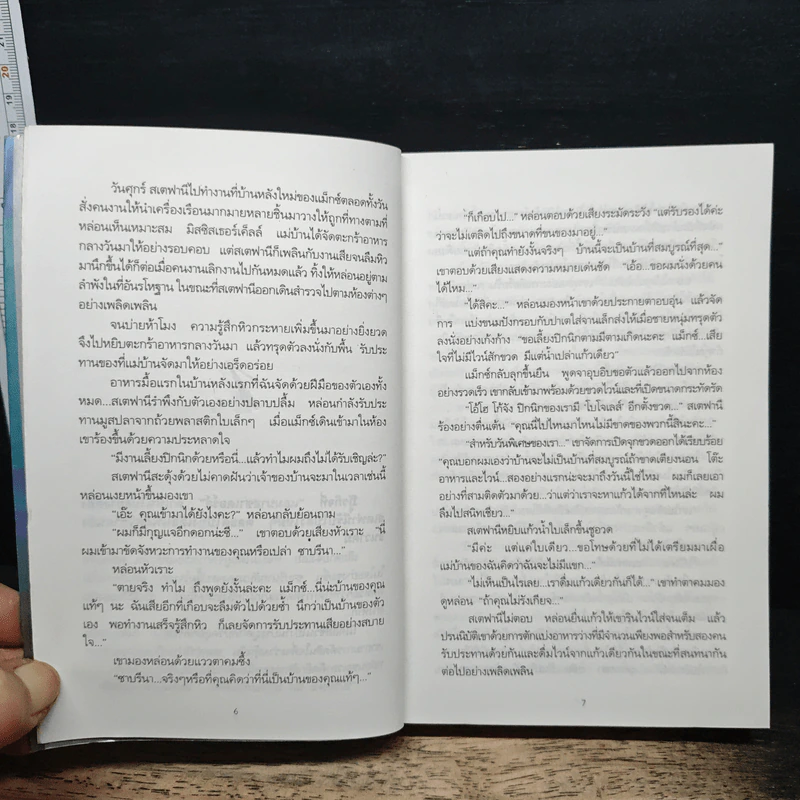 วันศุกร์ สเตฟานีไปทำงานที่บ้านหลังใหม่ของแม็กซ์ตลอดทั้งวัน
สั่งคนงานให้นำเครื่องเรือนมากมายหลายชิ้นมาวางให้ถูกที่ทางตามที่
หล่อนเห็นเหมาะสม มิสซิสเธอร์เคิ้ลล์ แม่บ้านได้จัดตะกร้าอาหาร
กลางวันมาให้อย่างรอบคอบ แต่สเตฟานีก็เพลินกับงานเสียจนลืมหิว
มานึกขึ้นได้ก็ต่อเมื่อคนงานเลิกงานไปกันหมดแล้ว ทิ้งให้หล่อนอยู่ตาม
ลำพังในที่อันรโหฐาน ในขณะที่สเตฟานีออกเดินสำรวจไปตามห้องต่างๆ
อย่างเพลิดเพลิน
จนบ่ายห้าโมง ความรู้สึกหิวกระหายเพิ่มขึ้นมาอย่างยิ่งยวด
จึงไปหยิบตะกร้าอาหารกลางวันมา แล้วทรุดตัวลงนั่งกับพื้น รับประ
ทานของที่แม่บ้านจัดมาให้อย่างเอร็ดอร่อย
อาหารมื้อแรกในบ้านหลังแรกที่ฉันจัดด้วยฝีมือของตัวเองทั้ง
หมด...สเตฟานีรำพึงกับตัวเองอย่างปลาบปลื้ม หล่อนกำลังรับประ
ทานมูสปลาจากถ้วยพลาสติกใบเล็กๆ เมื่อแม็กซ์เดินเข้ามาในห้อง
เขาร้องขึ้นด้วยความประหลาดใจ
"มีงานเลี้ยงปิกนิกด้วยหรือนี่...แล้วทำไมผมถึงไม่ได้รับเชิญล่ะ?"
สเตฟานีสะดุ้งด้วยไม่คาดฝันว่าเจ้าของบ้านจะมาในเวลาเช่นนี้
หล่อนเงยหน้าขึ้นมองเขา
"เอ๊ะ คุณเข้ามาได้ยังไงคะ?" หล่อนกลับย้อนถาม
"ผมก็มีกุญแจอีกดอกน่ะซี..." เขาตอบด้วยเสียงหัวเราะ "นี่
ผมเข้ามาขัดจังหวะการทำงานของคุณหรือเปล่า ซาบรีนา..."
หล่อนหัวเราะ
"ตายจริง ทำไม ถึงพูดยังงั้นล่ะคะ แม็กซ์...นี่น่ะบ้านของคุณ
แท้ๆ นะ ฉันเสียอีกที่เกือบจะลืมตัวไปด้วยซ้ำ นึกว่าเป็นบ้านของตัว
เอง พอทำงานเสร็จรู้สึกหิว ก็เลยจัดการรับประทานเสียอย่างสบาย
ใจ..."
เขามองหล่อนด้วยแววตาคมซึ้ง
"ซาบรีนา...จริงๆหรือที่คุณคิดว่าที่นี่เป็นบ้านของคุณแท้ๆ..."
6
"ก็เกือบไป..." หล่อนตอบด้วยเสียงระมัดระวัง "แต่รับรองได้ค่ะ
ว่าจะไม่เตลิดไปถึงขนาดที่ขนของมาอยู่..."
"แต่ถ้าคุณทำยังงั้นจริงๆ บ้านนี้จะเป็นบ้านที่สมบูรณ์ที่สุด..."
เขาตอบด้วยเสียงแสดงความหมายเด่นชัด "เอ้อ...ขอผมนั่งด้วยคน
ได้ไหม..."
"ได้สิคะ..." หล่อนมองหน้าเขาด้วยประกายตาอบอุ่น แล้วจัด
การ แบ่งขนมปังกรอบกับปาเตใส่จานเล็กส่งให้เมื่อชายหนุ่มทรุดตัว
ลงนั่งอย่างเก้งก้าง "ขอเลี้ยงปิกนิกตามมีตามเกิดนะคะ แม็กซ์...เสีย
ใจที่ไม่มีไวน์สักขวด มีแต่น้ำเปล่าแก้วเดียว"
แม็กซ์กลับลุกขึ้นยืน พูดจาอุบอิบขอตัวแล้วออกไปจากห้อง
อย่างรวดเร็ว เขากลับเข้ามาพร้อมด้วยขวดไวน์และที่เปิดขนาดกระทัดรัด
"โอ้โฮ โก้จัง ปิกนิกของเรามี 'โบโจเลส์' อีกตั้งขวด..." สเตฟานี
ร้องอย่างตื่นเต้น "คุณนี่ไปไหนมาไหนไม่มีขาดของพวกนี้สินะคะ..."
"สำหรับวันพิเศษของเรา..." เขาจัดการเปิดจุกขวดออกได้เรียบร้อย
"คุณบอกผมเองว่าบ้านจะไม่เป็นบ้านที่สมบูรณ์ถ้าขาดเตียงนอน โต๊ะ
อาหารและไวน์...สองอย่างแรกน่ะจะมาถึงวันนี้ใช่ไหม ผมก็เลยเอา
อย่างที่สามติดตัวมาด้วย...ว่าแต่ว่าเราจะหาแก้วได้จากที่ไหนล่ะ ผม
ลืมไปสนิทเชียว..."
สเตฟานีหยิบแก้วน้ำใบเล็กขึ้นชูอวด
"มีค่ะ แต่แค่ใบเดียว...ขอโทษด้วยที่ไม่ได้เตรียมมาเผื่อ
แม่บ้านของฉันคิดว่าฉันจะไม่มีแขก..."
"ไม่เห็นเป็นไรเลย...เราดื่มแก้วเดียวกันก็ได้..." เขาทำตาคมมอง
ดูหล่อน "ถ้าคุณไม่รังเกียจ..."
สเตฟานีไม่ตอบ หล่อนยื่นแก้วให้เขารินไวน์ใส่จนเต็ม แล้ว
ปรนนิบัติเขาด้วยการตักแบ่งอาหารว่างที่มีจำนวนเพียงพอสำหรับสองคน
รับประทานด้วยกันและดื่มไวน์จากแก้วเดียวกันในขณะที่สนทนากัน
ต่อไปอย่างเพลิดเพลิน
7